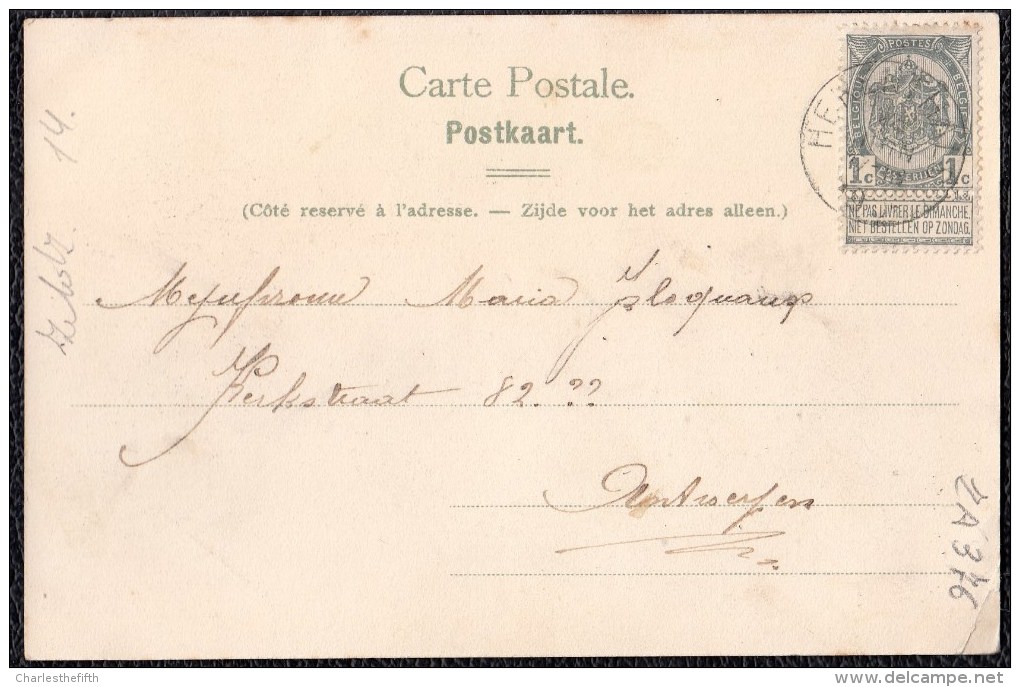 Carte Postale.
Postkaart.
(Côté reservé à l'adresse. — Zijde voor het adres alleen.)
POSTES
BELGIQUE
BELGIË
1c 1c
NE PAS LIVRER LE DIMANCHE
NIET BESTELLEN OP ZONDAG
Mejufrouw Maria
Kerkstraat 82. ??
Antwerpen
14.
Charlesthefifth
delcampe.net